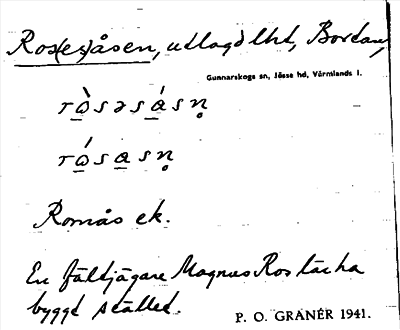 Ros(es)åsen, utlagd lht, Bortan,
Gunnarskogs sn, Jösse hd, Värmlands l.
rò̱səsá̱sn̥
ró̱sa̱sn̥
Romås ek.
En fältjägare Magnus Ros ha
byggt stället.
P. O. GRANÉR 1941.